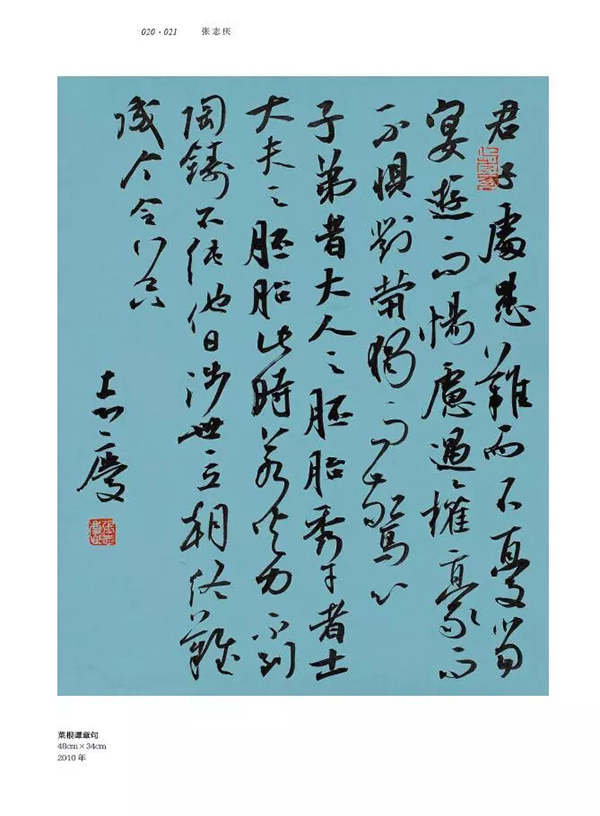 020 · 021 张志庆
君子處患難而不憂當
宴遊而惕慮遇權豪而
不懼對煢獨而驚心
子弟者大人之胚胎秀才者士
大夫之胚胎此時若火力不到
陶鑄不純他日涉世立朝終難
成个令器
志慶
菜根谭章句
48cm×34cm
2010 年